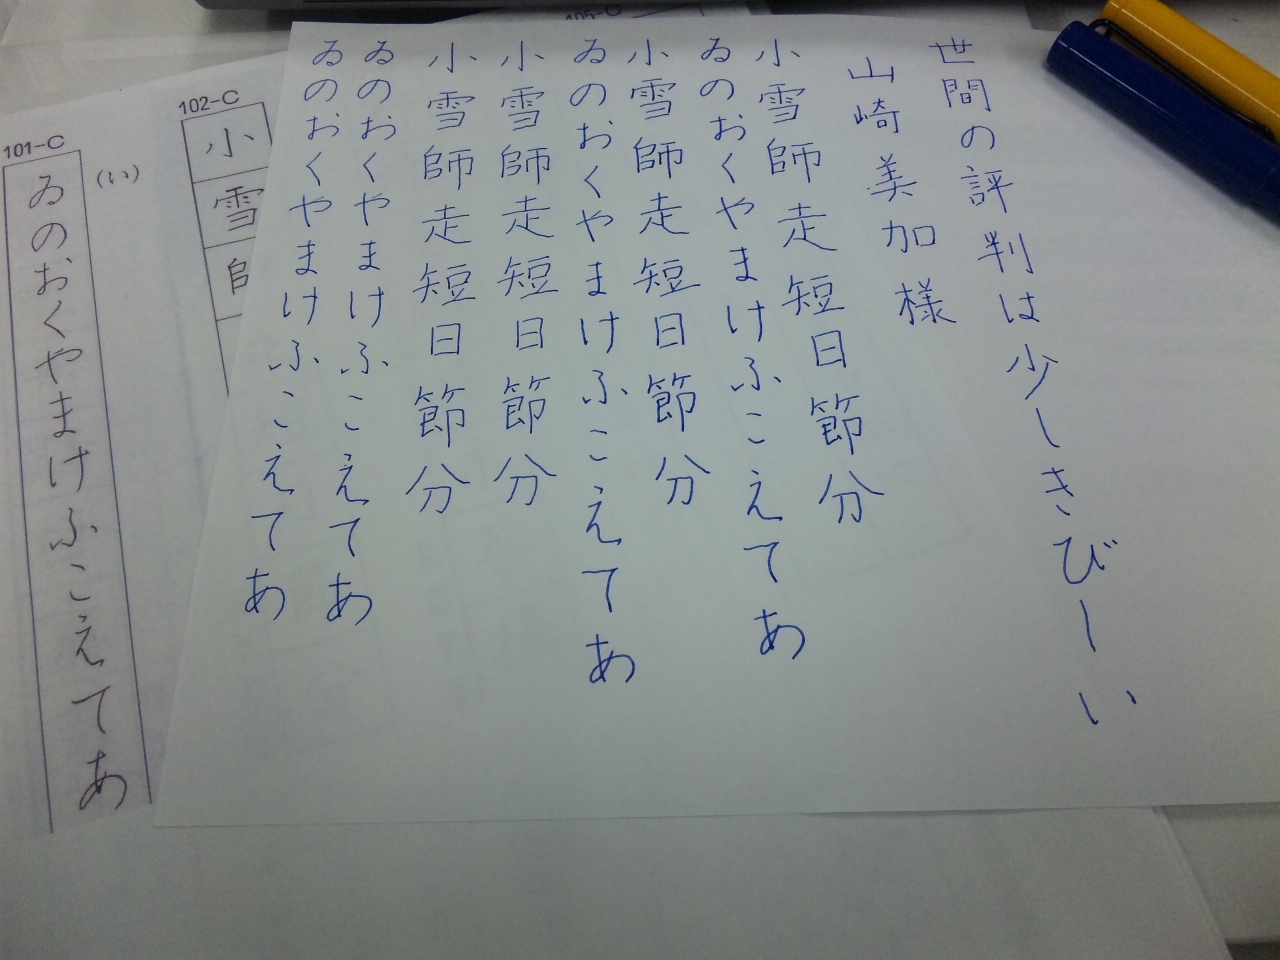 世間の評判は少しきびしい
山崎美加様
小雪師走短日節分
ゐのおくやまけふこえてあ
小雪師走短日節分
ゐのおくやまけふこえてあ
小雪師走短日節分
小雪師走短日節分
ゐのおくやまけふこえてあ
ゐのおくやまけふこえてあ
105-C
102-C
小雪師
(い)
101-C
ゐのおくやまけふこえてあ